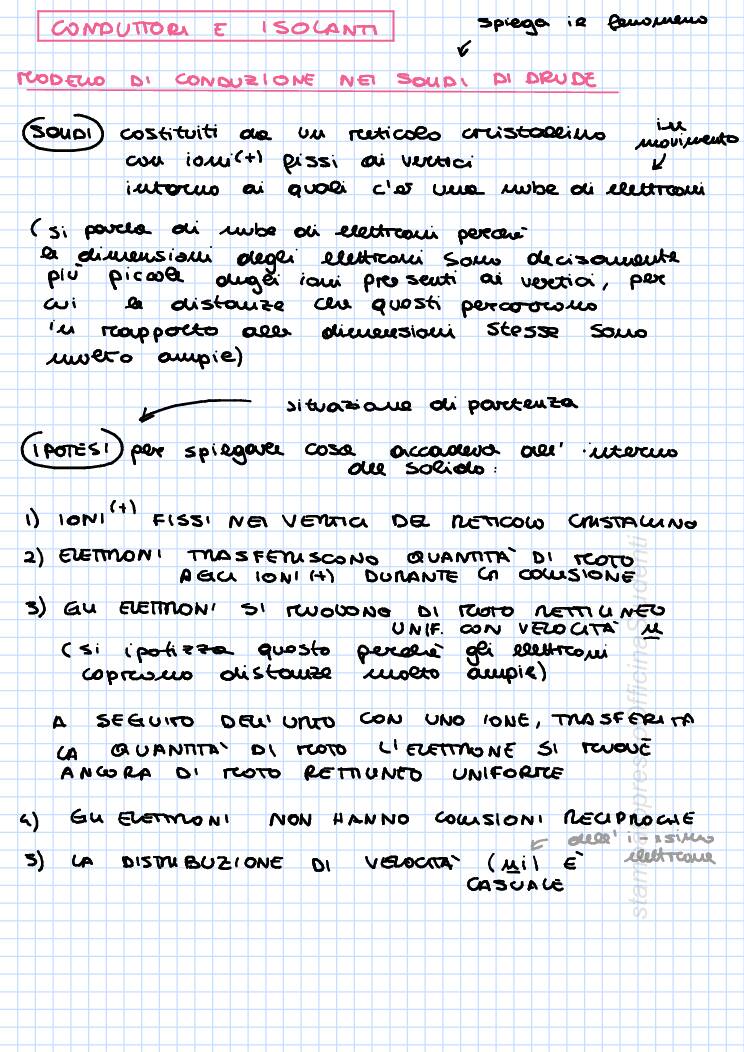 CONDUTTORI E ISOLANTI
spiega il fenomeno
MODELLO DI CONDUZIONE NEI SOLIDI DI DRUDE
SOLIDI costituiti da un reticolo cristallino
in movimento
con ioni (+) fissi ai vertici
intorno ai quali c'è una nube di elettroni
(si parla di nube di elettroni perché
le dimensioni degli elettroni sono decisamente
più piccole degli ioni presenti ai vertici, per
cui le distanze che questi percorrono
in rapporto alle dimensioni stesse sono
molto ampie)
situazione di partenza
IPOTESI per spiegare cosa accadeva all'interno
del solido:
1) IONI (+) FISSI NEI VERTICI DEL RETICOLO CRISTALLINO
2) ELETTRONI TRASFERISCONO QUANTITÀ DI MOTO
AGLI IONI (+) DURANTE LA COLLISIONE
3) GLI ELETTRONI SI MUOVONO DI MOTO RETTILINEO
UNIF. CON VELOCITÀ u
(si ipotizza questo perché gli elettroni
coprono distanze molto ampie)
A SEGUITO DELL'URTO CON UNO IONE, TRASFERITA
LA QUANTITÀ DI MOTO L'ELETTRONE SI MUOVE
ANCORA DI MOTO RETTILINEO UNIFORME
4) GLI ELETTRONI NON HANNO COLLISIONI RECIPROCHE
dell'i-esimo
elettrone
5) LA DISTRIBUZIONE DI VELOCITÀ (ui) È
CASUALE